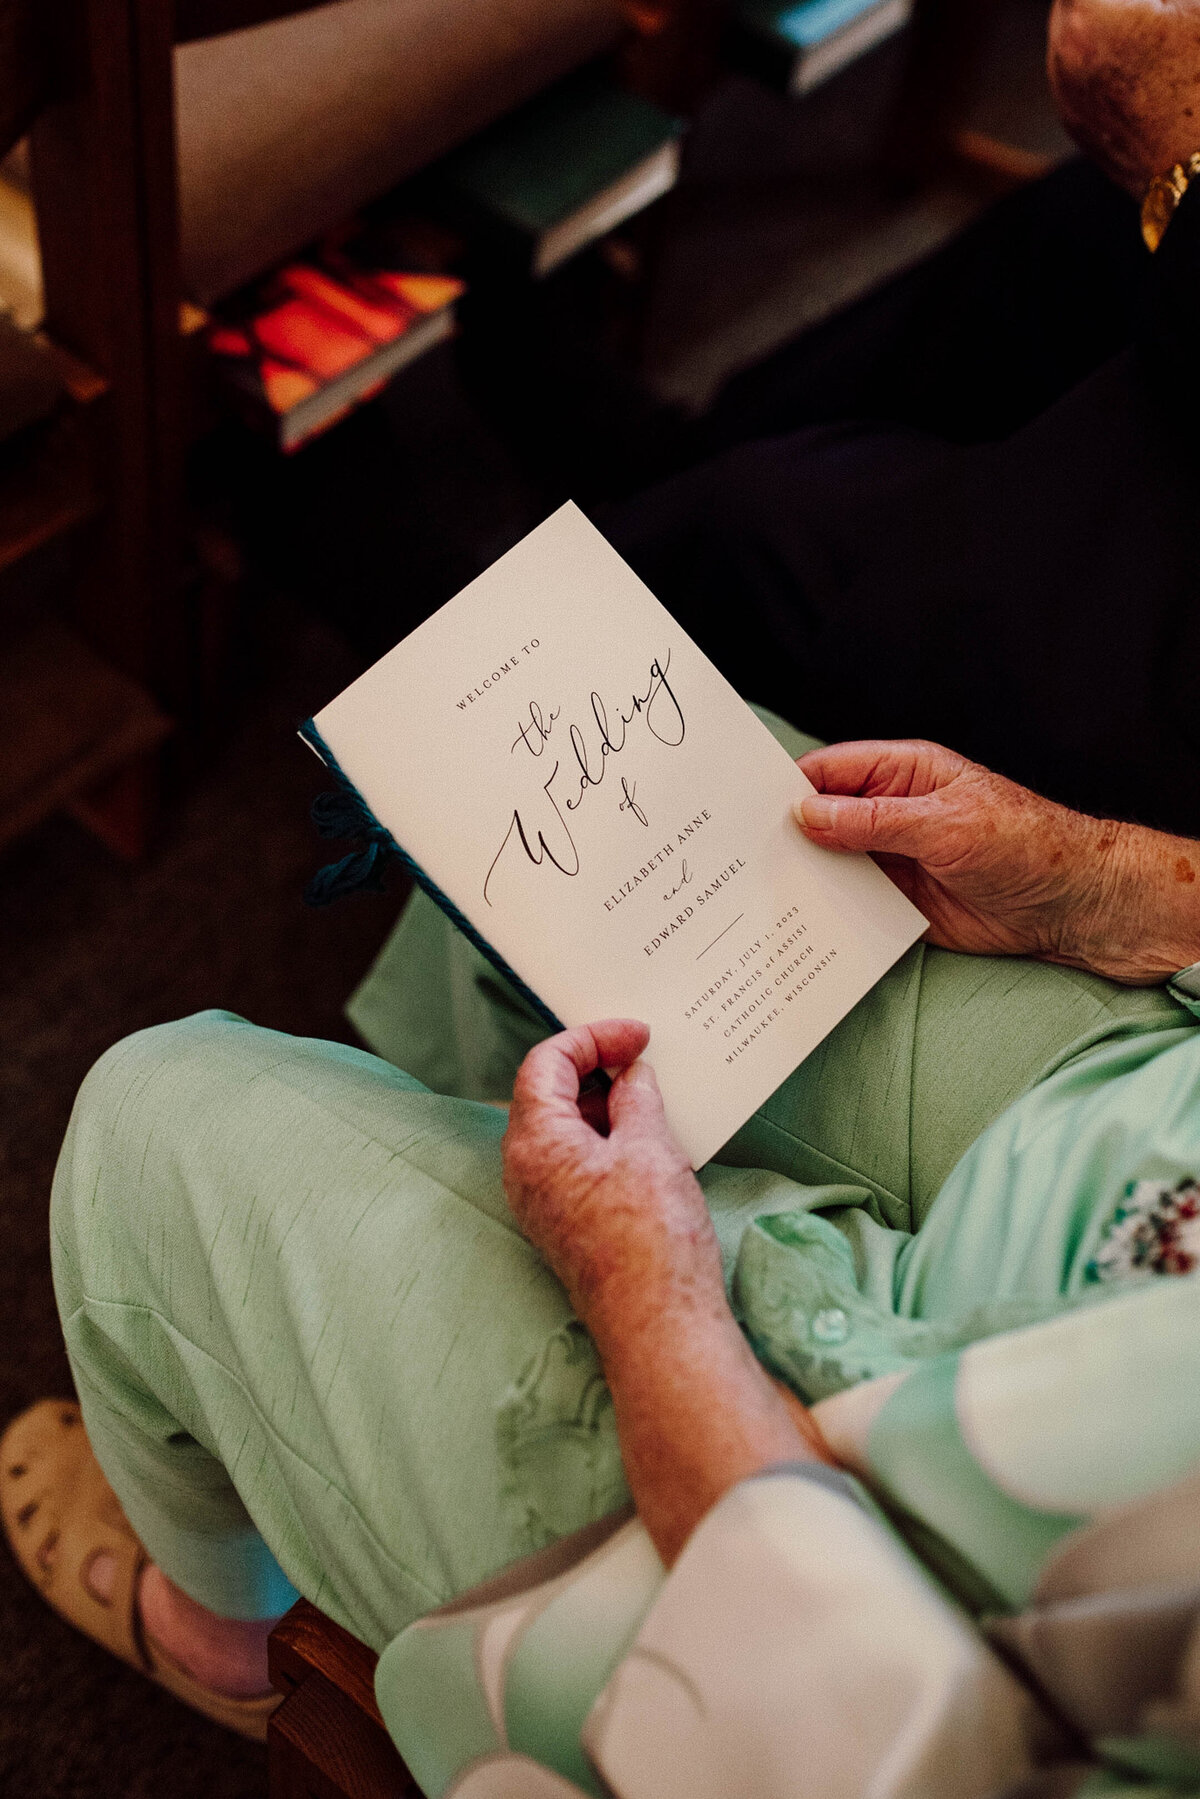 WELCOME TO
the
Wedding
of
ELIZABETH ANNE
and
EDWARD SAMUEL
SATURDAY, JULY 1, 2023
ST. FRANCIS of ASSISI
CATHOLIC CHURCH
MILWAUKEE, WISCONSIN